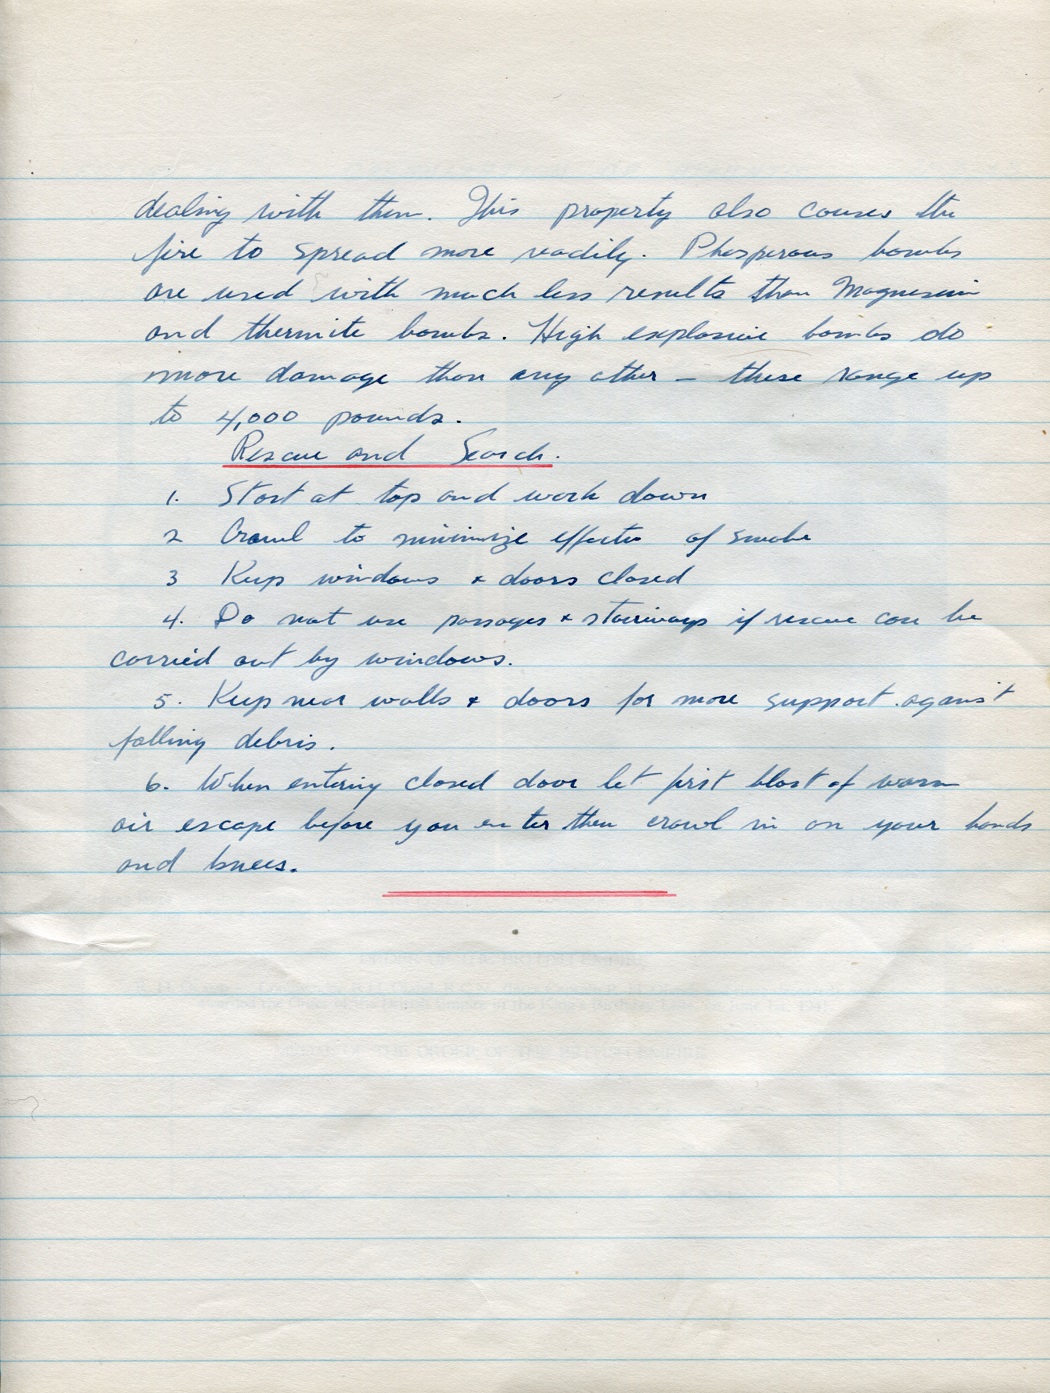 dealing with them. This property also causes the
fire to spread more readily. Phosperous bombs
are used with much less results than Magnesium
and thermite bombs. High explosive bombs do
more damage than any other — these range up
to 4,000 pounds.
Rescue and Search.
1. Start at top and work down
2 Crawl to minimize effects of smoke
3 Keep windows & doors closed
4. Do not use passages & stairways if rescue can be
carried out by windows.
5. Keep near walls & doors for more support against
falling debris.
6. When entering closed door let first blast of warm
air escape before you enter then crawl in on your hands
and knees.